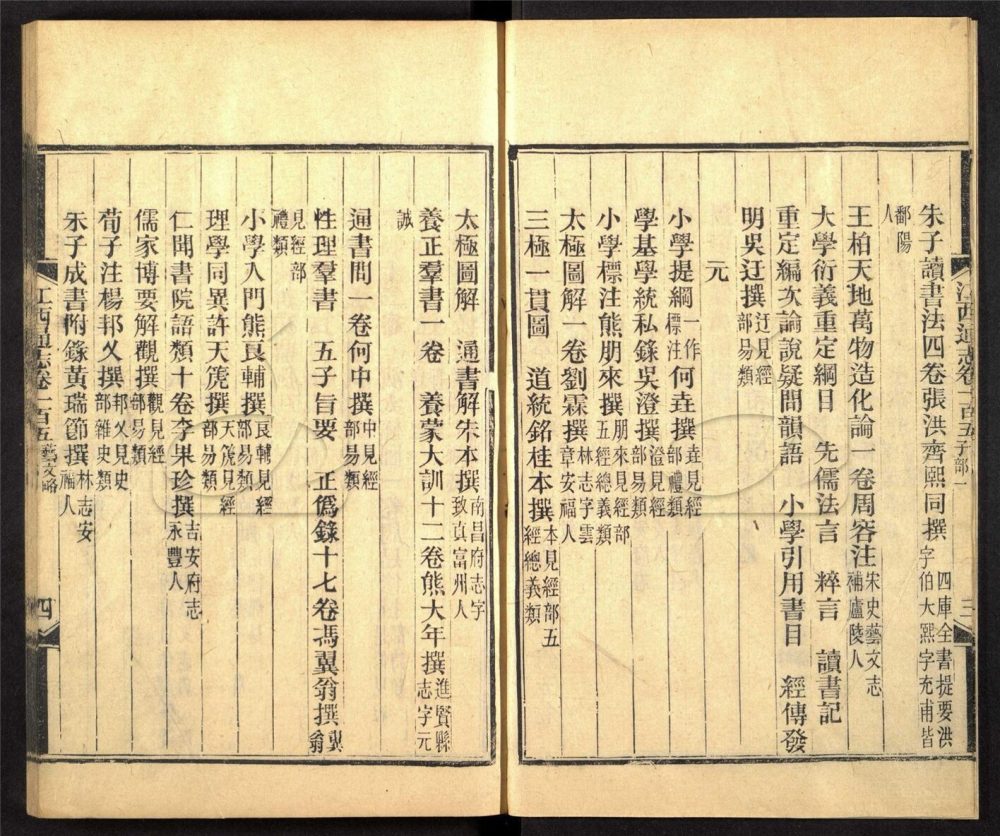 朱子讀書法四卷張洪齊熙同撰四庫全書提要洪字伯大熙字充甫皆
鄱陽人
王柏天地萬物造化論一卷周容注宋史藝文志補廬陵人
大學衍義重定綱目　先儒法言　粹言　讀書記
重定編次論說疑問韻語　小學引用書目　經傳發
明吳迂撰迂見經部易類
元
小學提綱一作標注何垚撰垚見經部禮類
學基學統私錄吳澄撰澄見經部易類
小學標注熊朋來撰朋來見經部五經總義類
太極圖解一卷劉霖撰林志字雲章安福人
三極一貫圖　道統銘桂本撰本見經部五經總義類
江西通志卷一百五子部一　三
太極圖解　通書解朱本撰南昌府志字致真富州人
養正羣書一卷　養蒙大訓十二卷熊大年撰進賢縣志字元
誠
通書問一卷何中撰中見經部易類
性理羣書　五子旨要　正僞錄十七卷馮翼翁撰翼翁
見經部禮類
小學入門熊良輔撰良輔見經部易類
理學同異許天篪撰天篪見經部易類
仁聞書院語類十卷李杲珍撰吉安府志永豐人
儒家博要解觀撰觀見經部易類
荀子注楊邦乂撰邦乂見史部雜史類
朱子成書附錄黃瑞節撰林志安福人
江西通志卷一百五藝文略　四